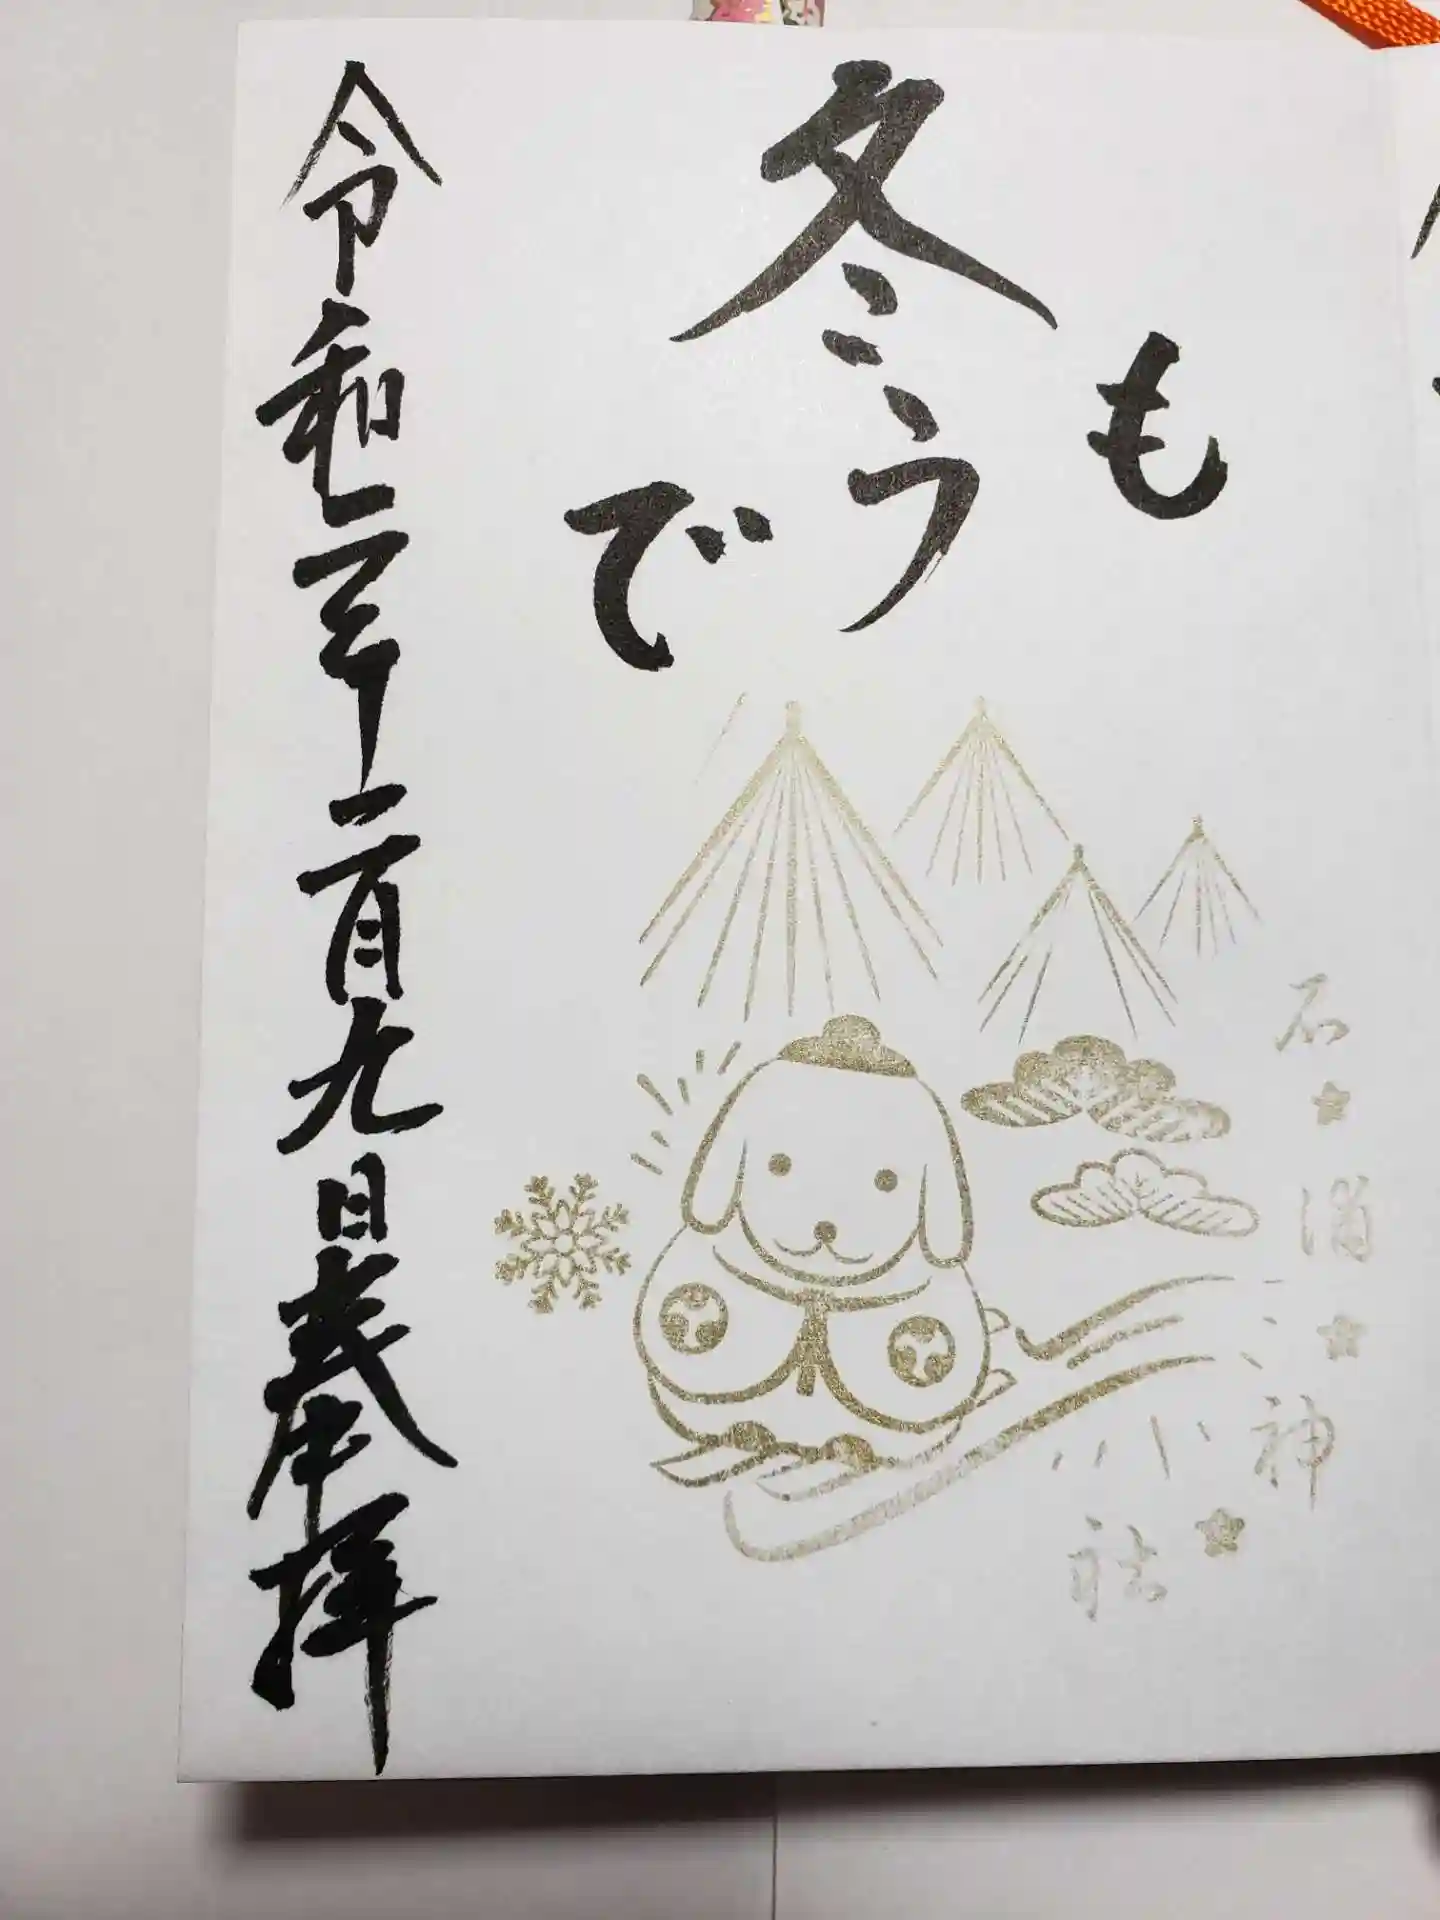 冬もうで
石浦神社
令和 年二月九日 奉拝